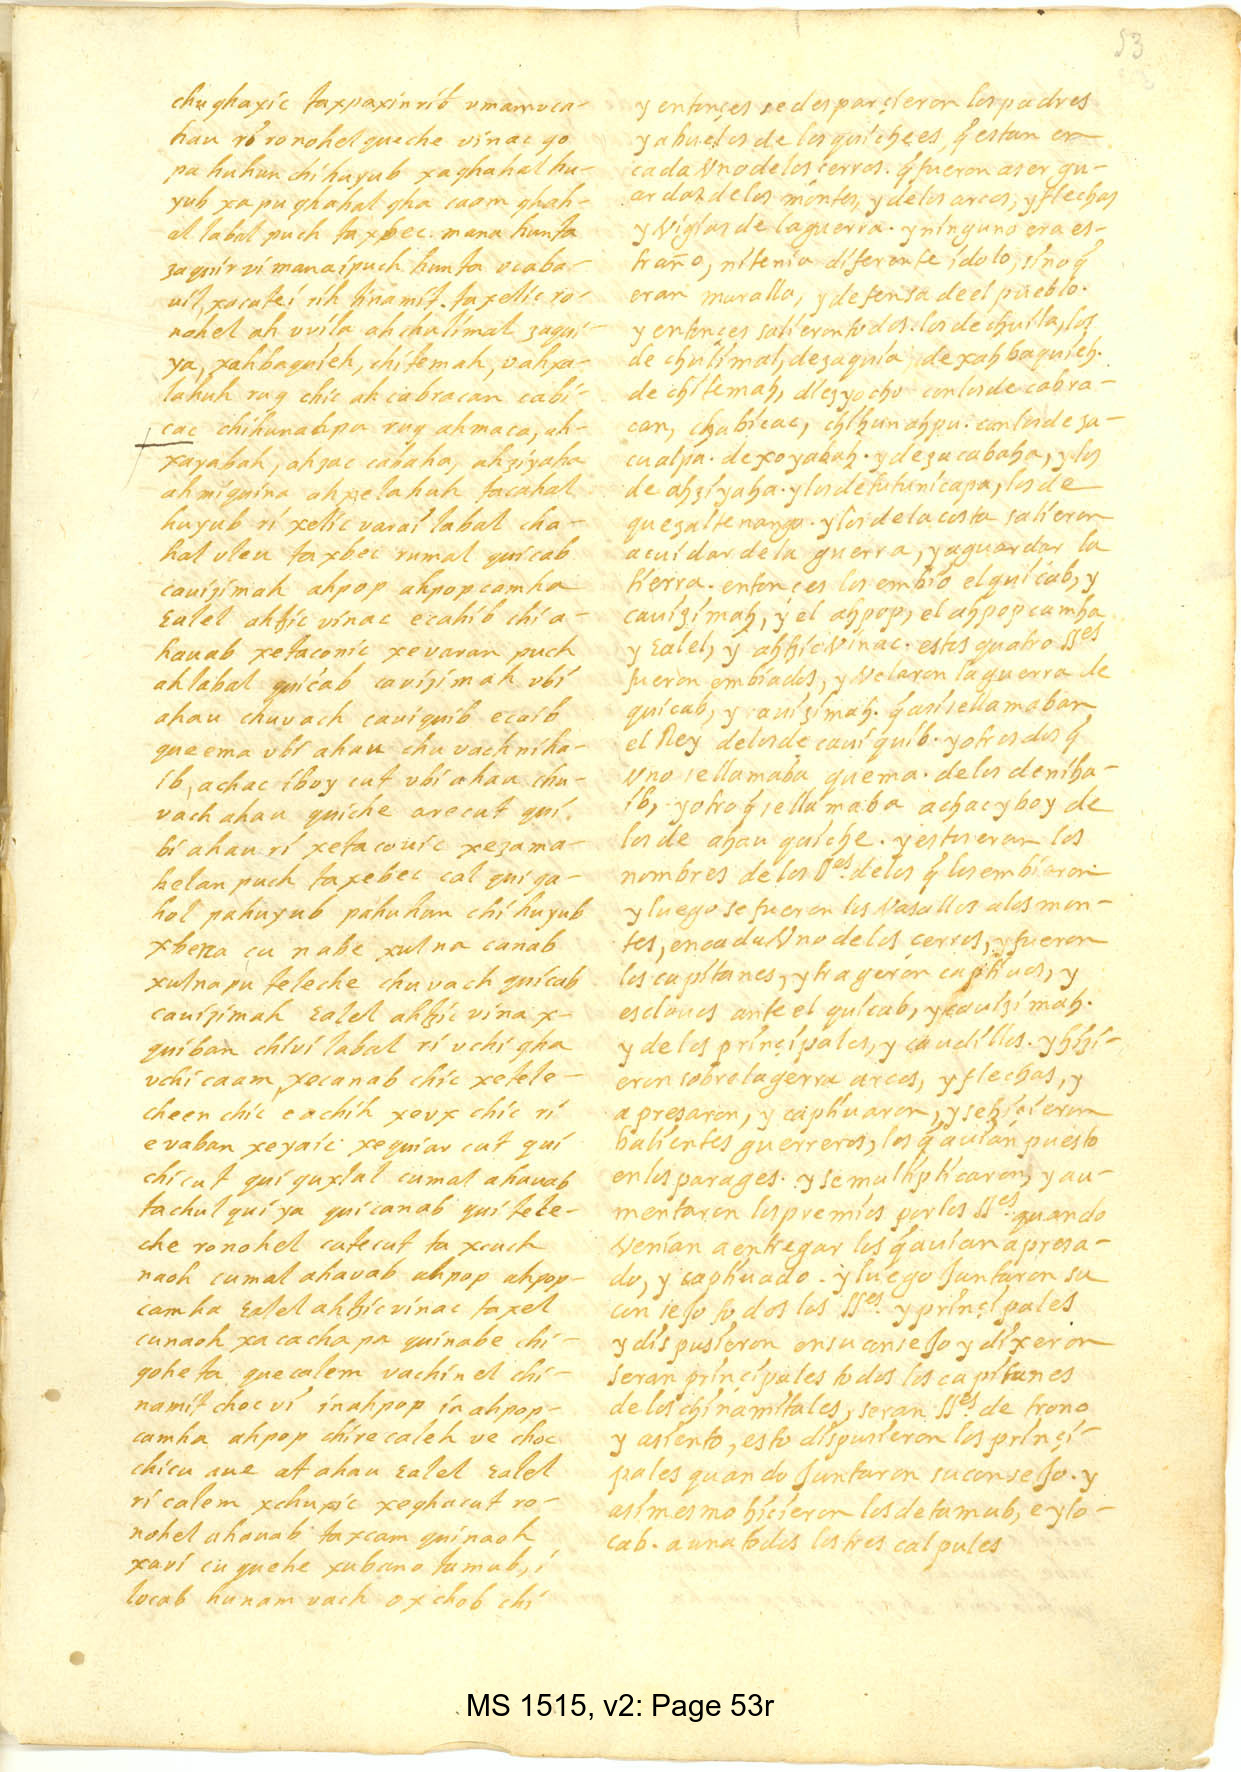 53
chughaxic taxpaxinrib vmamvca-
hau ri ronohel queche vinac go
pa huhun chi huyub xaghahal hu-
yub xa pu ghahal gha caam ghah-
al labal puch taxbec. mana hunta
zaquirvi manaipuch hunta vcaba-
vil, xacatei rih tinamit. taxelic ro-
nohel ah vvila ah chulimal zaqui-
ya, xahbaquieh, chi temah, vahxa-
lahuh ruq chic ah cabracan cabi-
cac chihunahpu ruq ahmaca, ah-
xayabah, ahzac cabaha, ahziyaha
ahmiquina ahxelahuh tacahal
huyub ri xelic varai labal cha-
hal uleu taxbec rumal quicab
cauizimah ahpop ahpopcamha
galel ahtzic vinac ecahib chi a-
hauab xetaconic xevaran puch
ah labal quicab cauizimah vbi
ahau chuvach cauiquib ecaib
queema vbi ahau chu vach niha-
ib, achac iboy cut vbi ahau chu-
vach ahau quiche arecut qui
bi ahau ri xetacouic xezama-
helan puch taxebec cal quiga-
hol pahuyub pahuhun chi huyub
xbena cu nabe xulna canab
xulnapu teleche chuvach quicab
cauizimah galel ahtzic vina x-
quiban chivi labal ri vchi gha
vchi caam, xecanab chic xetele-
cheen chic eachih xevx chic ri
evaban xeyaic xequiar cut qui
chicut qui quxlal cumal ahauab
tachul qui ya quicanab qui tele-
che ronohel catecut ta xcuch
naoh cumal ahavab ahpop ahpop-
camha galel ahtzicvinac taxel
cunaoh xa cacha pa quinabe chi-
gohe ta quecalem vachinel chi-
namit choc vi in ahpop in ahpop-
camha ahpop chire caleh ve choc
chicu aue at ahau galel galel
ri calem xchuxic xeghacut ro-
nohel ahauab taxcam quinaoh
xavi cu quehe xubano tamub, i
locab hunam vach oxchob chi
y entonçes se desparçieron los padres
y abuelos de los quichees, q̃ estan en
cada Vno de los cerros. q̃ fueron a ser gu-
ardas de los montes, y de los arcos, y flechas
y Vigias de la guerra. y ninguno era es-
traño, ni tenia diferente idolo, sino q̃
eran muralla, y defensa de el pueblo.
y entonces salieron todos. los de chuila, los
de chulimal, de zaquia, de xahbaquieh.
de chitemah, diez y ocho con los de cabra-
can, chabicac, chihunahpu. con los de za-
cualpa. de xoyabah. y de zacabaha, y los
de ahziyaha. y los de totunicapa, los de
quezaltenango. y los de la costa salieron
a cuidar de la guerra, y a guardar la
tierra. entonçes los embio el quicab, y
cauizimah, y el ahpop, el ahpopcamha
y galel, y ahtzic Vinac. estos quatro SSes
fueron embiados, y Velaron la guerra de
quicab, y cauizimah. q̃ asi se llamaban
el Rey de los de cauiquib. y otros dos q̃
Vno se llamaba quema. de los de niha-
ib, y otro q̃ se llamaba achac yboy de
los de ahau quiche. y estos eran los
nombres de los Ses. de los q̃ los embiaron
y luego se fueron los Vasallos a los mon-
tes, en cada Vno de los cerros, y fueron
los capitanes, y trageron captiuos, y
esclauos ante el quicab, y cauizimah.
y de los prinçipales, y caudillos. y hizi-
eron sobre la gerra arcos, y flechas, y
apresaron, y captiuaron, y se hiçieron
balientes guerreros, los q̃ auian puesto
en los parages. y se multiplicaron, y au-
mentaron los premios por los SSes quando
Venian a entregar los q̃ auian apresa-
do, y captiuado. y luego Juntaron su
conseJo todos los SSes. y prinçipales
y dispusieron en su conseJo y dixeron
seran prinçipales todos los capitanes
de los chinamitales, seran SSes. de trono
y asiento, esto dispusieron los prinçi-
pales quando Juntaron su conseJo. y
asimesmo hiçieron los de tamub, e ylo-
cab. a una todos los tres calpules
MS 1515, v2: Page 53r